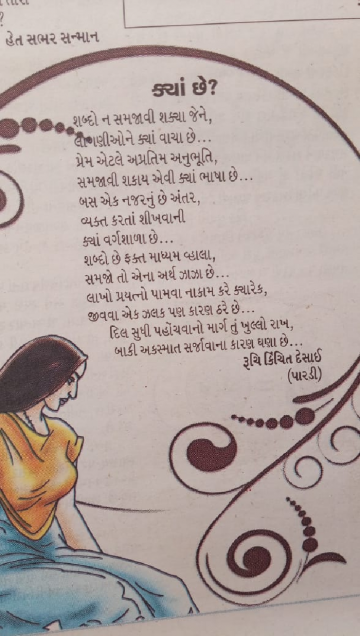 ?
હેત સભર સન્માન
ક્યાં છે?
શબ્દો ન સમજાવી શક્યા જેને,
લાગણીઓને ક્યાં વાચા છે...
પ્રેમ એટલે અપ્રતિમ અનુભૂતિ,
સમજાવી શકાય એવી ક્યાં ભાષા છે...
બસ એક નજરનું છે અંતર,
વ્યક્ત કરતાં શીખવાની
ક્યાં વર્ગશાળા છે...
શબ્દ છે ફક્ત માધ્યમ વ્હાલા,
સમજો તો એના અર્થ ઝાઝા છે...
લાખો પ્રયત્નો પામવા નાકામ કરે ક્યારેક,
જીવવા એક ઝલક પણ કારણ ઠરે છે...
દિલ સુધી પહોંચવાનો માર્ગ તું ખુલ્લો રાખ,
બાકી અકસ્માત સર્જાવાના કારણ ઘણા છે...
રૂચિ કિંચિત દેસાઈ
(પારડી)